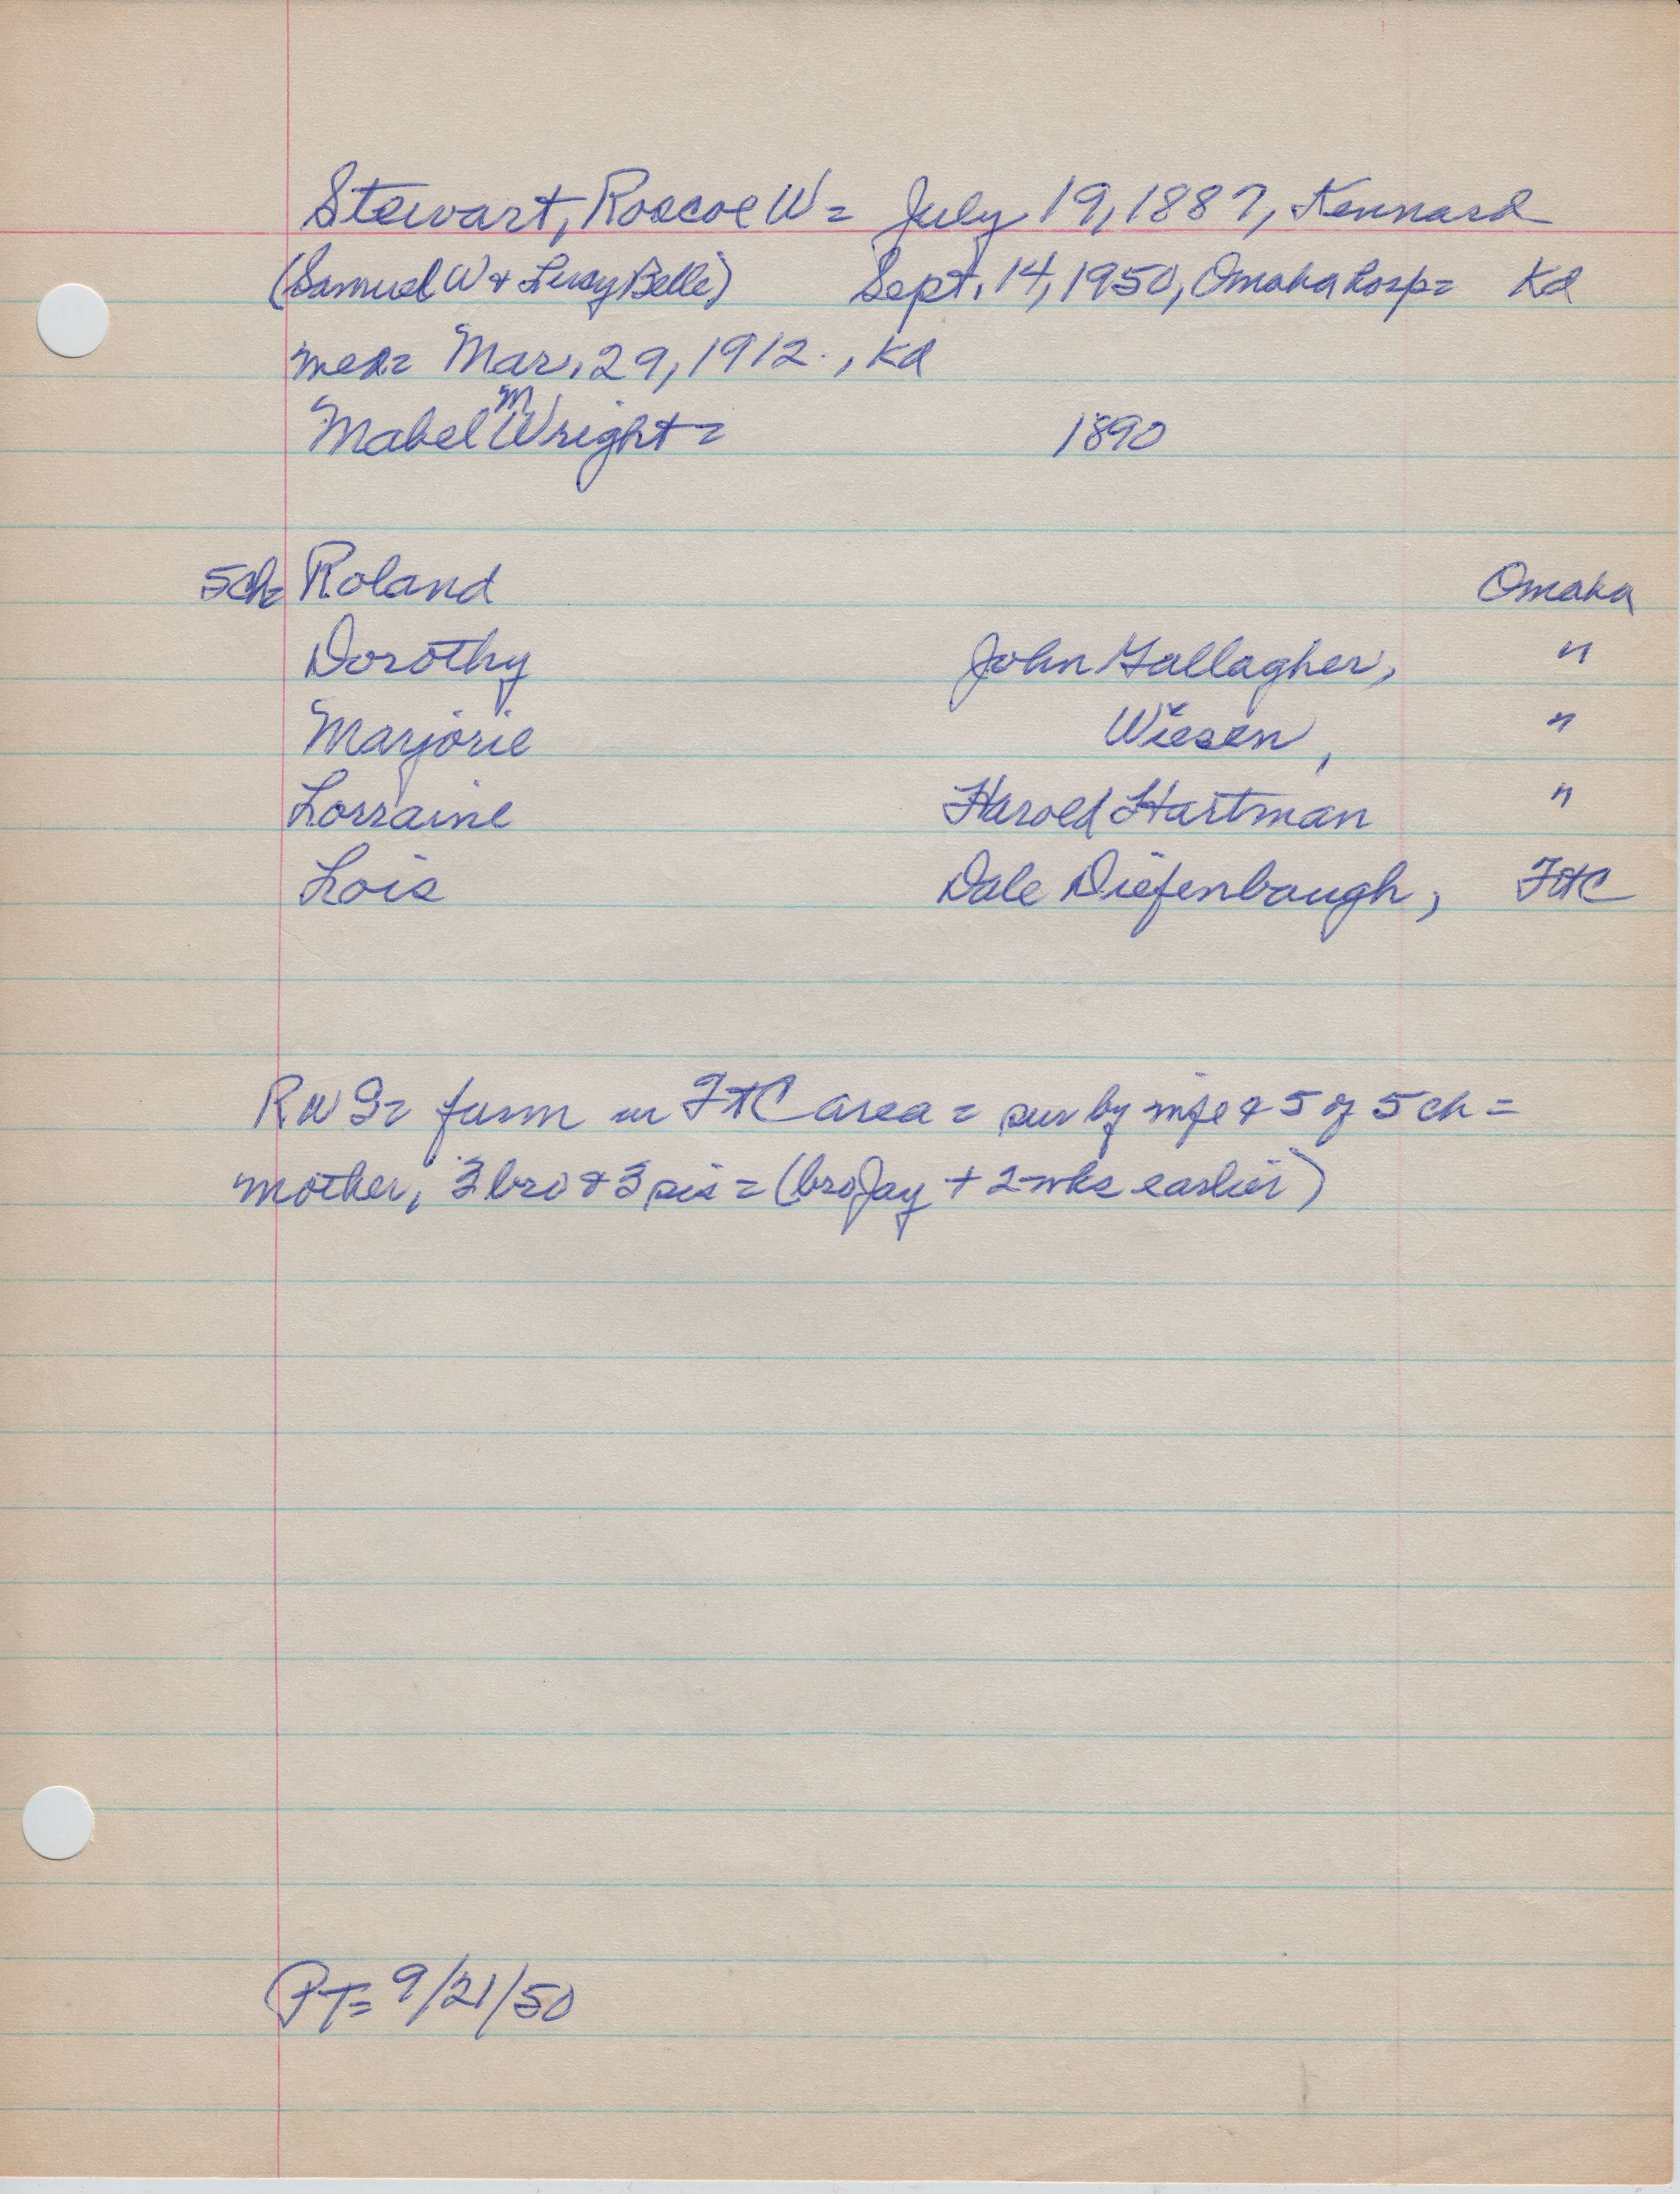 Stewart, Roscoe W = July 19, 1887, Kennard
(Samuel W & Lucy Belle) Sept. 14, 1950, Omaha hosp = Kd
med = Mar. 29, 1912., Kd
Mabel M Wright = 1890
5ch = Roland Omaha
Dorothy John Gallagher, "
Marjorie Wiesen, "
Lorraine Harold Hartman "
Lois Dale Diefenbaugh, FtC
RWS = farm in FtC area = sur by wife & 5 of 5 ch =
mother, 3 bro & 3 sis = (bro Jay + 2 wks earlier)
PT = 9/21/50